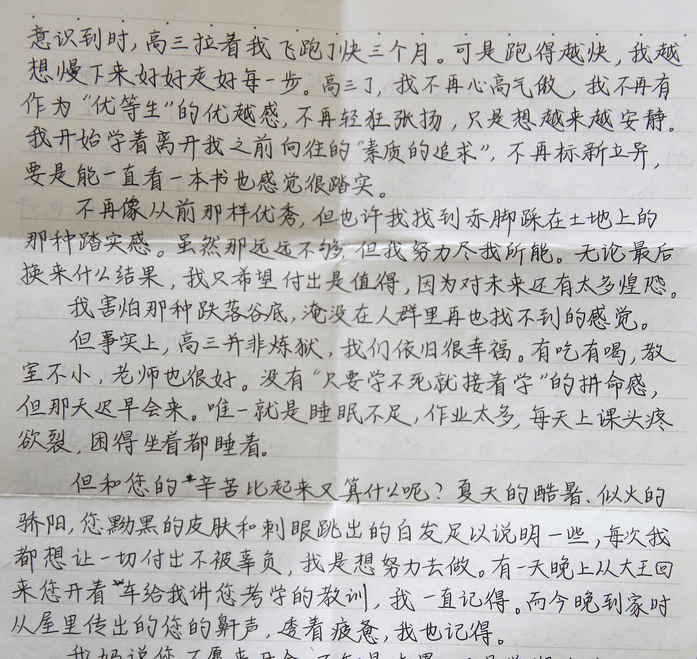 意识到时,高三拉着我飞跑了快三个月。可是跑得越快,我越
想慢下来好好走好每一步。高三了,我不再心高气傲,我不再有
作为“优等生”的优越感,不再轻狂张扬,只是想越来越安静。
我开始学着离开我之前向往的“素质的追求”,不再标新立异,
要是能一直看一本书也感觉很踏实。
不再像从前那样优秀,但也许我找到赤脚踩在土地上的
那种踏实感。虽然那远远不够,但我努力尽我所能。无论最后
换来什么结果,我只希望付出是值得,因为对未来还有太多惶恐。
我害怕那种跌落谷底,淹没在人群里再也找不到的感觉。
但事实上,高三并非炼狱,我们依旧很幸福。有吃有喝,教
室不小,老师也很好。没有“只要学不死就接着学”的拼命感,
但那天迟早会来。唯一就是睡眠不足,作业太多,每天上课头疼
欲裂,困得坐着都睡着。
但和您的*辛苦比起来又算什么呢?夏天的酷暑、似火的
骄阳,您黝黑的皮肤和刺眼跳出的白发足以说明一些,每次我
都想让一切付出不被辜负,我是想努力去做。有一天晚上从大王回
来您开着*车给我讲您考学的教训,我一直记得。而今晚到家时
从屋里传出的您的鼾声,透着疲惫,我也记得。
我妈说您不愿来开会